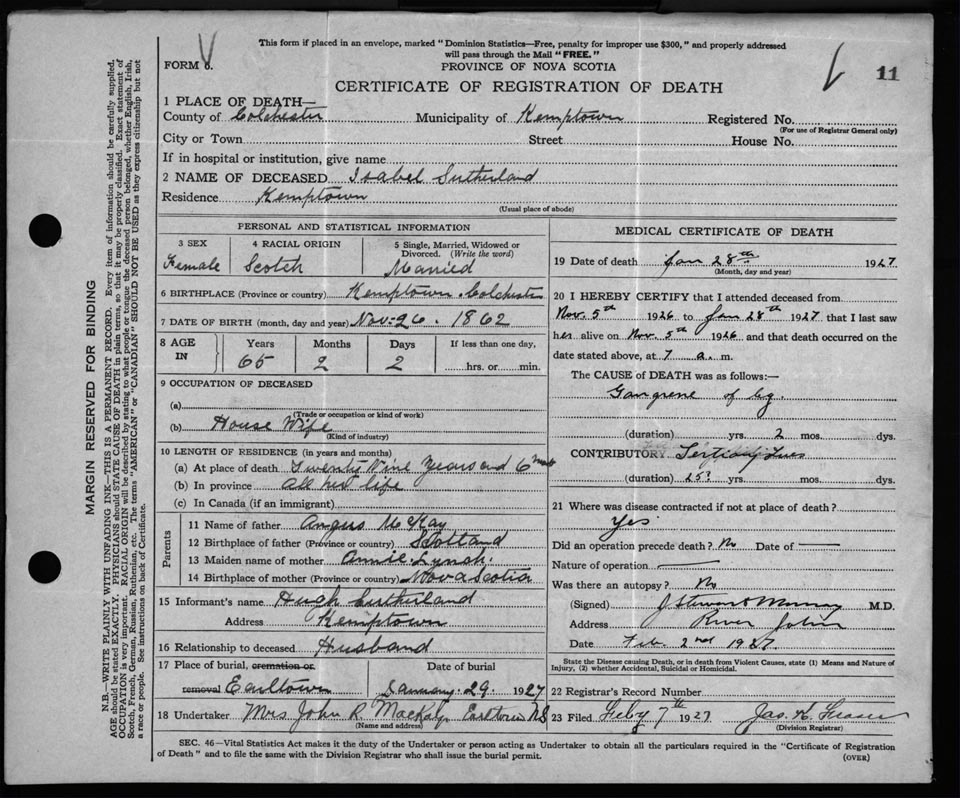 This form if placed in an envelope, marked "Dominion Statistics—Free, penalty for improper use $300," and properly addressed
will pass through the Mail "FREE."
FORM 6.
PROVINCE OF NOVA SCOTIA
11
CERTIFICATE OF REGISTRATION OF DEATH
1 PLACE OF DEATH—
County of Colchester Municipality of Kemptown Registered No.
(For use of Registrar General only)
City or Town Street House No.
If in hospital or institution, give name
2 NAME OF DECEASED Isabel Sutherland
Residence Kemptown
(Usual place of abode)
PERSONAL AND STATISTICAL INFORMATION
3 SEX 4 RACIAL ORIGIN 5 Single, Married, Widowed or
Divorced. (Write the word)
Female Scotch Married
6 BIRTHPLACE (Province or country) Kemptown Colchester
7 DATE OF BIRTH (month, day and year) Nov-26. 1862
8 AGE IN Years Months Days If less than one day,
65 2 2 hrs. or min.
9 OCCUPATION OF DECEASED
(a)
(Trade or occupation or kind of work)
(b) House Wife
(Kind of industry)
10 LENGTH OF RESIDENCE (in years and months)
(a) At place of death Twenty Nine Years and 6 mos
(b) In province All her life
(c) In Canada (if an immigrant)
Parents
11 Name of father Angus McKay
12 Birthplace of father (Province or country) Scotland
13 Maiden name of mother Annie Lynch
14 Birthplace of mother (Province or country) Nova Scotia
15 Informant's name Hugh Sutherland
Address Kemptown
16 Relationship to deceased Husband
17 Place of burial, cremation or Date of burial
removal Earltown January 29 1927
18 Undertaker Mrs John R. MacKay Earltown N.S
(Name and address)
MEDICAL CERTIFICATE OF DEATH
19 Date of death Jan 28th 1927
(Month, day and year)
20 I HEREBY CERTIFY that I attended deceased from
Nov. 5th 1926 to Jan 28th 1927 that I last saw
her alive on Nov. 5th 1926 and that death occurred on the
date stated above, at 7 a. m.
The CAUSE of DEATH was as follows:—
Gangrene of leg.
(duration) yrs. 2 mos. dys.
CONTRIBUTORY Tertiary Lues
(duration) 25? yrs. mos. dys.
21 Where was disease contracted if not at place of death?
Yes
Did an operation precede death? No Date of —
Nature of operation —
Was there an autopsy? No
(Signed) J Stewart Murray M.D.
Address River John
Date Feb. 2nd 1927
State the Disease causing Death, or in death from Violent Causes, state (1) Means and Nature of
Injury, (2) whether Accidental, Suicidal or Homicidal.
22 Registrar's Record Number
23 Filed Feby 7th 1927 Jas. A. Fraser
(Division Registrar)
SEC. 46—Vital Statistics Act makes it the duty of the Undertaker or person acting as Undertaker to obtain all the particulars required in the "Certificate of Registration
of Death" and to file the same with the Division Registrar who shall issue the burial permit.
(OVER)
MARGIN RESERVED FOR BINDING
N.B.—WRITE PLAINLY WITH UNFADING INK—THIS IS A PERMANENT RECORD. Every item of information should be carefully supplied.
AGE should be stated EXACTLY. PHYSICIANS should STATE CAUSE OF DEATH in plain terms, so that it may be properly classified. Exact statement of
OCCUPATION is very important. RACIAL ORIGIN will be described by stating to what people or tongue the deceased person belonged, whether English, Irish,
Scotch, French, German, Russian, Ruthenian, etc. The terms "AMERICAN" or "CANADIAN" SHOULD NOT BE USED as they express citizenship but not
a race or people. See instructions on back of Certificate.